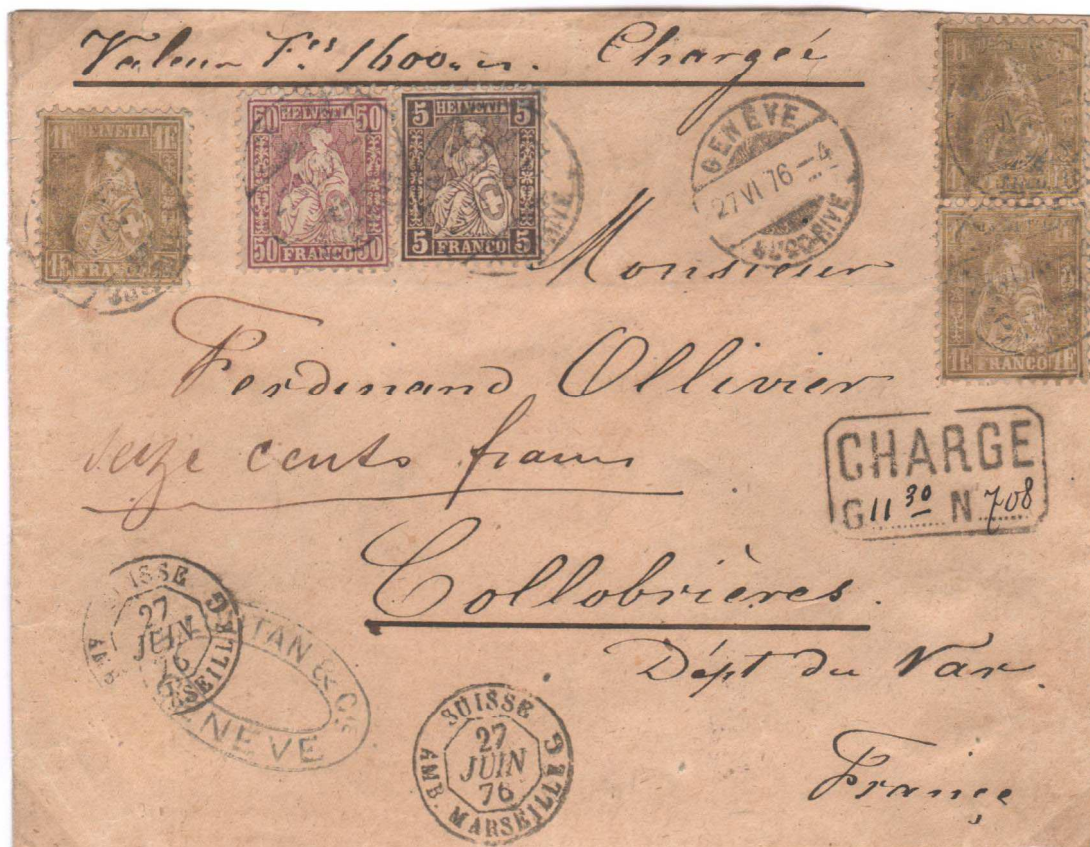 Valeur Fcs 1600. Chargée
1F HELVETIA 1F
1F FRANCO
50 HELVETIA 50
50 FRANCO 50
5 HELVETIA 5
5 FRANCO 5
GENÈVE
27 VI 76 – 4
RIVE
1F FRANCO 1F
Monsieur
Ferdinand Ollivier
seize cents francs
CHARGE
G 11 30 N 708
Collobrières.
Dépt du Var.
France
SUISSE
27
JUIN
76
AMB. MARSEILLE G
TAN & Cie
GENEVE
SUISSE
27
JUIN
76
AMB. MARSEILLE G